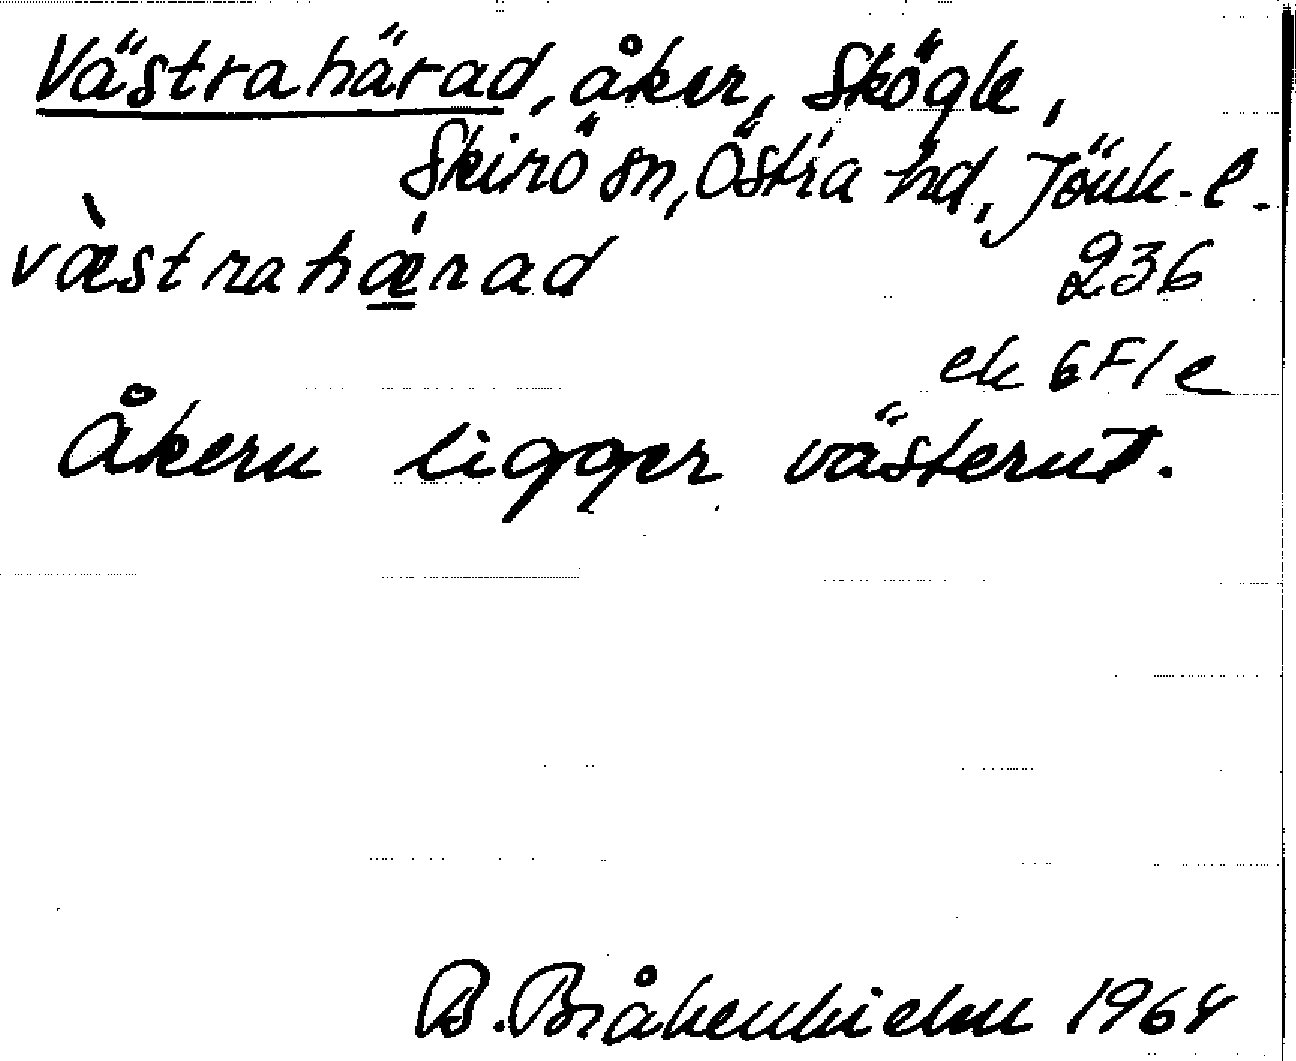 Västrahärad, åker, Skögle,
Skirö sn, Östra hd, Jönk. l.
væ̀strahǽrad 236
ek 6F1e
Åkern ligger västerut.
B. Bråkenhielm 1964